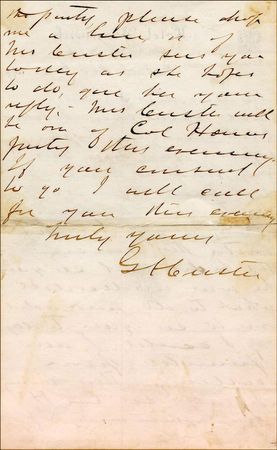 party, please drop
me a line or if
Mrs Custer sees you
today as she hopes
to do, give her your
reply. Mrs Custer will
be one of Col
party this evening
If you consent
to go I will call
for you this evening
Truly yours
G A Custer